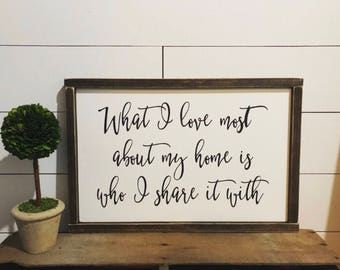 What I love most
about my home is
who I share it with